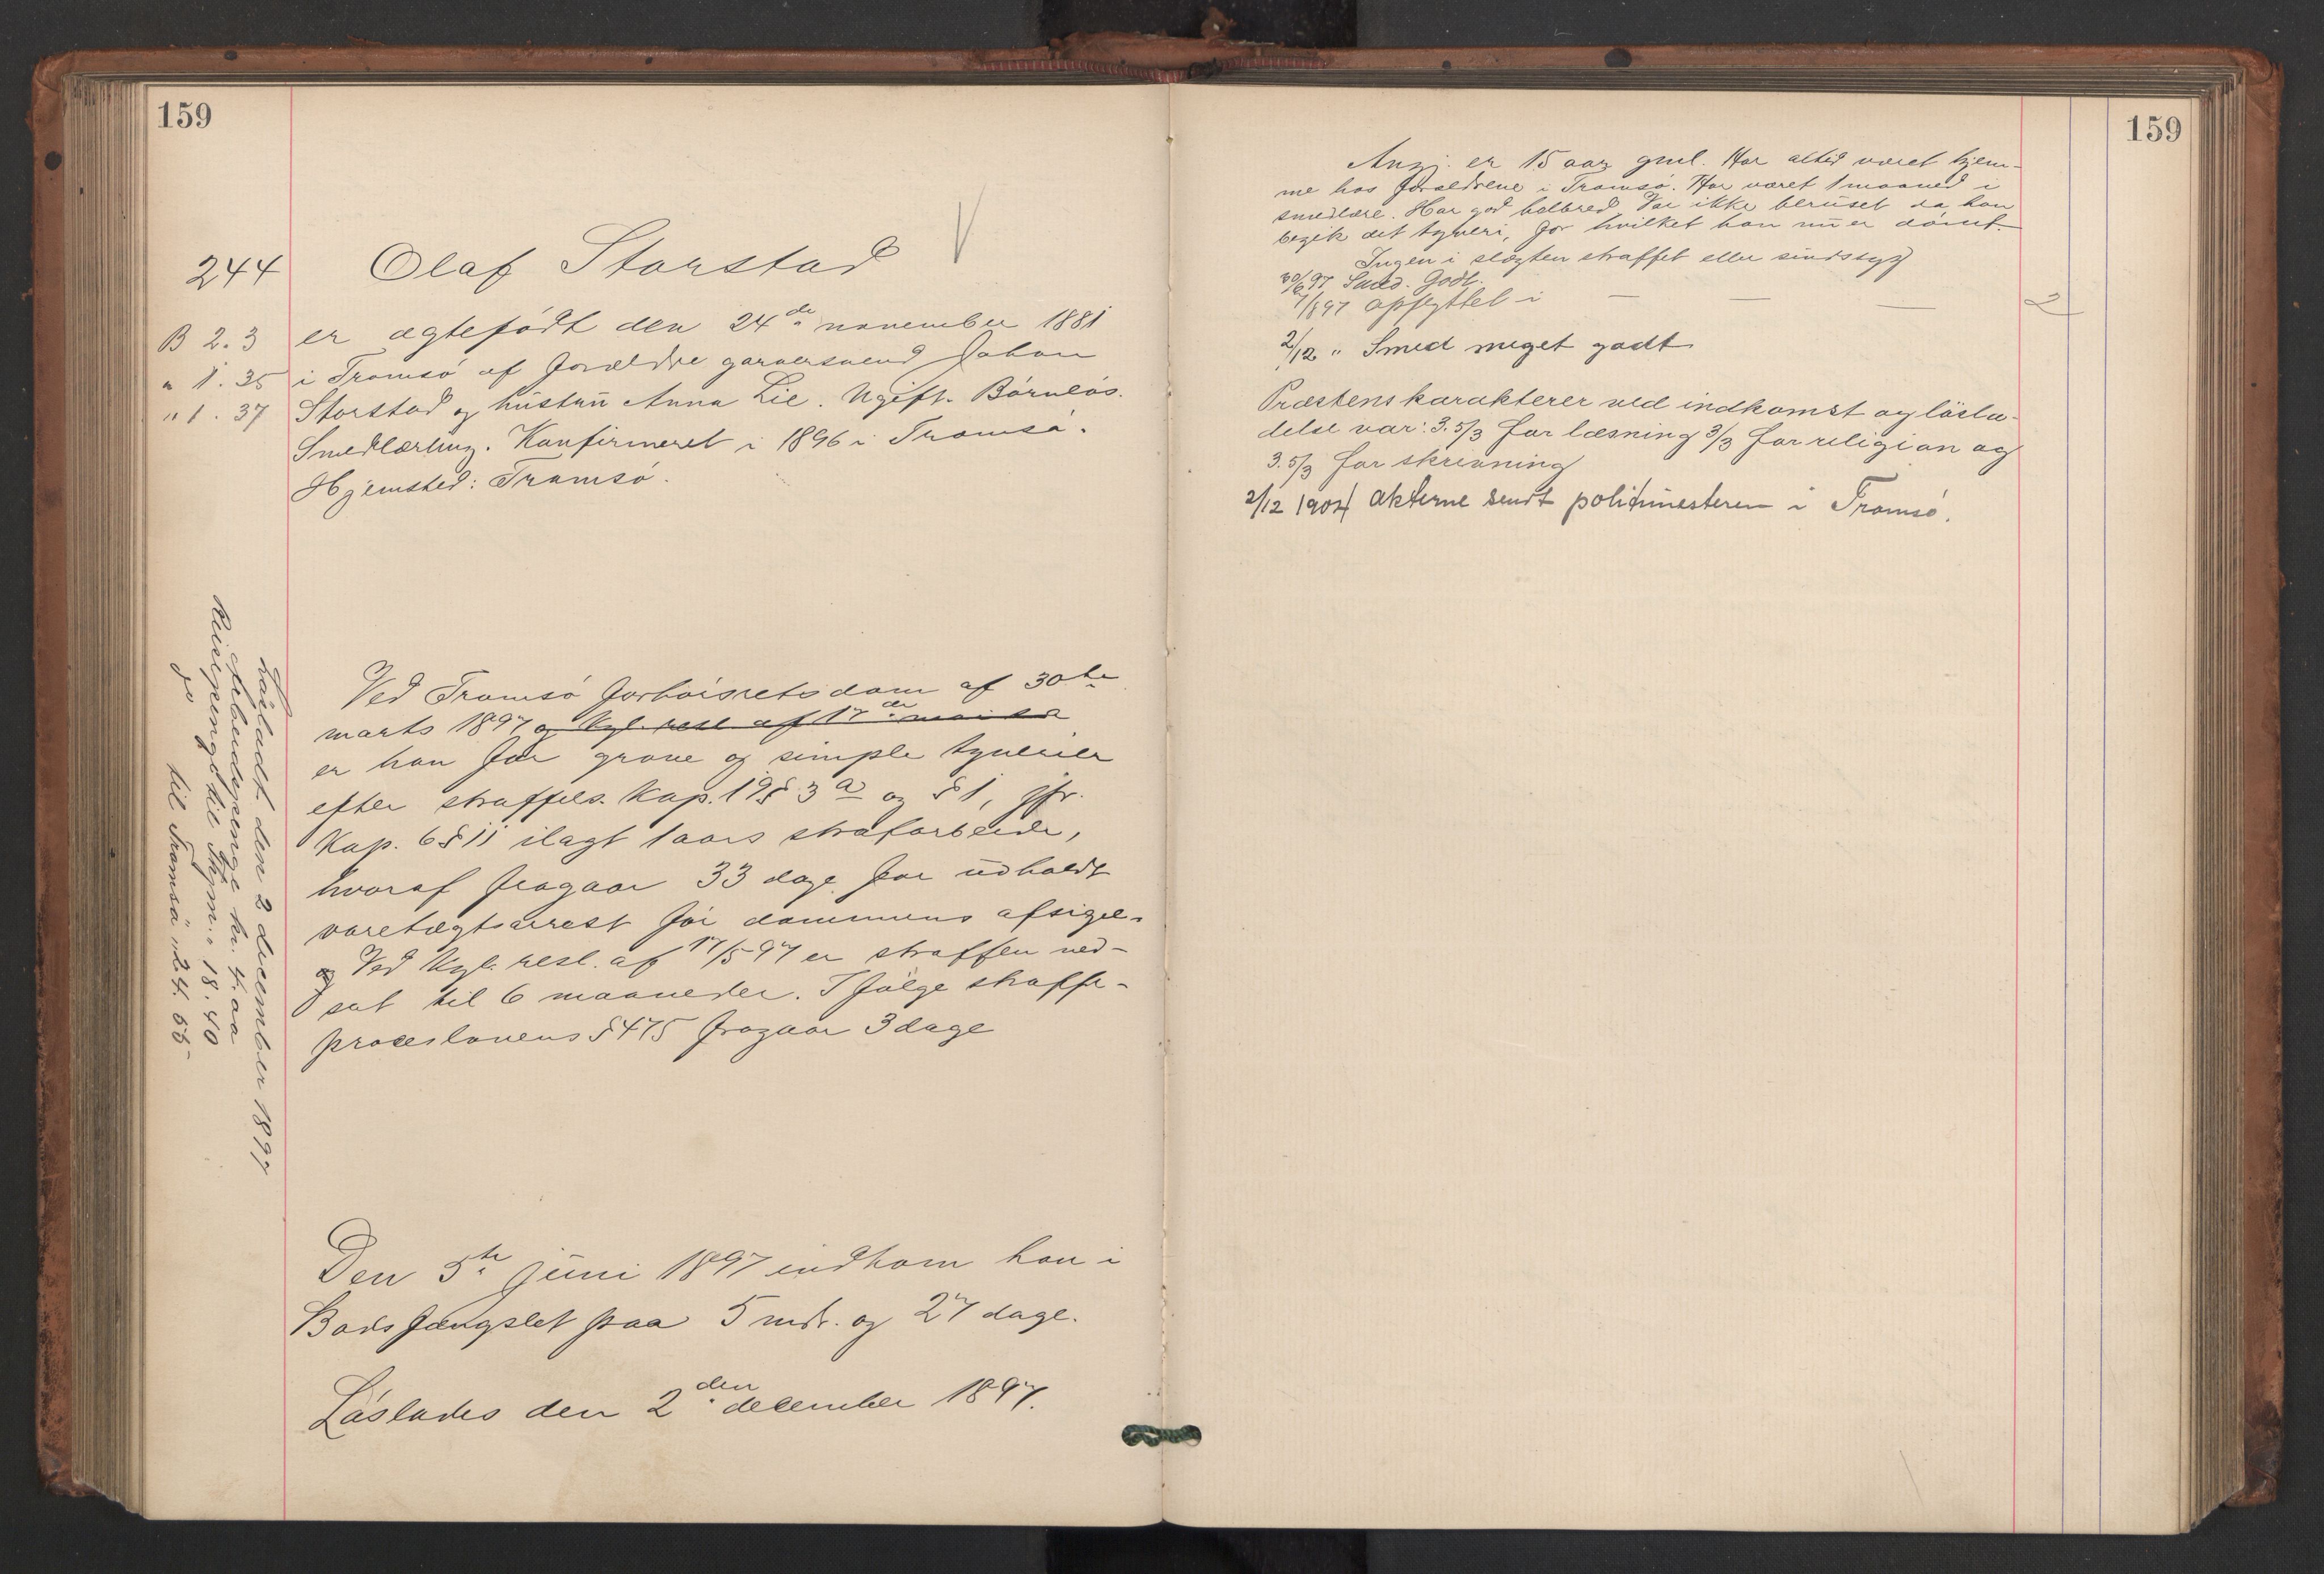 159
244
Olaf Storstad
V
B 2. 3
" 1. 35
" 1. 37
er ægtefødt den 24de november 1881
i Tromsø af forældre garversvend Johan
Storstad og hustru Anna Lie. Ugift. Børnløs.
Smedlærling. Konfirmeret i 1896 i Tromsø.
Hjemsted: Tromsø.
Ved Tromsø forhørsrets dom af 30te
marts 1897 og Kgl. resl. af 17de mai s. a.
er han for grove og simple tyverier
efter straffels. Kap. 19 § 3 a og § 1, jfr.
Kap. 6 § 11 ilagt 1 aars strafarbeide,
hvoraf fragaar 33 dage for udholdt
varetægtsarrest før dommens afsigel-
og Ved Kgl. resl. af 17/5 97 er straffen ned-
sat til 6 maaneder. Ifølge straffe-
proceslovens § 475 fragaar 3 dage
Løsladt den 2 december 1897
Arbeidspenge kr. 4.00
Reisepenge til Thjm. " 18.40
do til Tromsø " 24.55
Den 5te juni 1897 indkom han i
Bodsfængslet paa 5 mdr. og 27 dage.
Løslades den 2den december 1897.
159
Angj. er 15 aar gml. Har altid været hjem-
me hos forældrene i Tromsø. Har været 1 maaned i
smedlære. Har god helbred. Var ikke beruset da han
begik det tyveri, for hvilket han nu er dømt.
Ingen i slægten straffet eller sindssyg
30/6 97 Smed. Godt.
7/8 97 opflyttet i — — — 2
2/12 " Smed meget godt
Præstens karakterer ved indkomst og løsla-
delse var: 3.5/3 for læsning 3/3 for religion og
3.5/3 for skrivning
2/12 1904 akterne sendt politimesteren i Tromsø.